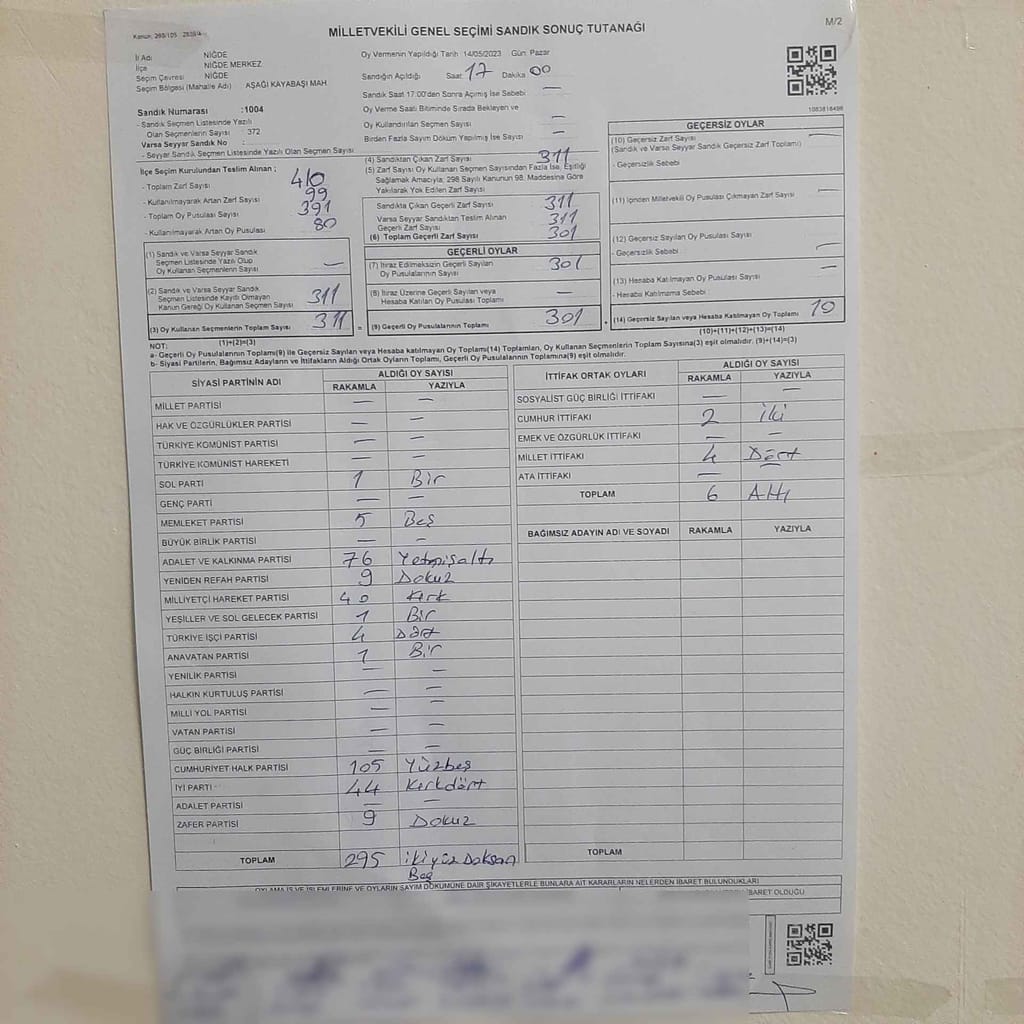 MİLLETVEKİLİ GENEL SEÇİMİ SANDIK SONUÇ TUTANAĞI
M/2
İl Adı NİĞDE
İlçe NİĞDE MERKEZ
Seçim Çevresi NİĞDE
Seçim Bölgesi (Mahalle Adı) AŞAĞI KAYABAŞI MAH
Sandık Numarası :1004
- Sandık Seçmen Listesinde Yazılı
Olan Seçmenlerin Sayısı : 372
Varsa Seyyar Sandık No :
- Seyyar Sandık Seçmen Listesinde Yazılı Olan Seçmen Sayısı
Oy Vermenin Yapıldığı Tarih 14/05/2023 Gün: Pazar
Sandığın Açıldığı Saat 17 Dakika 00
Sandık Saat 17:00'den Sonra Açılmış İse Sebebi —
Oy Verme Saati Bitiminde Sırada Bekleyen ve
Oy Kullandırılan Seçmen Sayısı —
Birden Fazla Sayım Döküm Yapılmış İse Sayısı —
1083818498
İlçe Seçim Kurulundan Teslim Alınan ;
- Toplam Zarf Sayısı 410
- Kullanılmayarak Artan Zarf Sayısı 99
- Toplam Oy Pusulası Sayısı 391
- Kullanılmayarak Artan Oy Pusulası 80
(1) Sandık ve Varsa Seyyar Sandık
Seçmen Listesinde Yazılı Olup
Oy Kullanan Seçmenlerin Sayısı —
(2) Sandık ve Varsa Seyyar Sandık
Seçmen Listesinde Kayıtlı Olmayan
Kanun Gereği Oy Kullanan Seçmen Sayısı 311
(3) Oy Kullanan Seçmenlerin Toplam Sayısı 311 =
(1)+(2)=(3)
(4) Sandıktan Çıkan Zarf Sayısı 311
(5) Zarf Sayısı Oy Kullanan Seçmen Sayısından Fazla İse, Eşitliği
Sağlamak Amacıyla; 298 Sayılı Kanunun 98. Maddesine Göre
Yakılarak Yok Edilen Zarf Sayısı
Sandıkta Çıkan Geçerli Zarf Sayısı 311
Varsa Seyyar Sandıktan Teslim Alınan
Geçerli Zarf Sayısı 311
(6) Toplam Geçerli Zarf Sayısı 301
GEÇERLİ OYLAR
(7) İtiraz Edilmeksizin Geçerli Sayılan
Oy Pusulalarının Sayısı 301
(8) İtiraz Üzerine Geçerli Sayılan veya
Hesaba Katılan Oy Pusulası Toplamı —
(9) Geçerli Oy Pusulalarının Toplamı 301 +
GEÇERSİZ OYLAR
(10) Geçersiz Zarf Sayısı —
(Sandık ve Varsa Seyyar Sandık Geçersiz Zarf Toplamı)
- Geçersizlik Sebebi
(11) İçinden Milletvekili Oy Pusulası Çıkmayan Zarf Sayısı —
(12) Geçersiz Sayılan Oy Pusulası Sayısı
- Geçersizlik Sebebi —
(13) Hesaba Katılmayan Oy Pusulası Sayısı —
- Hesaba Katılmama Sebebi
(14) Geçersiz Sayılan veya Hesaba Katılmayan Oy Toplamı 10
(10)+(11)+(12)+(13)=(14)
NOT:
a- Geçerli Oy Pusulalarının Toplamı(9) ile Geçersiz Sayılan veya Hesaba katılmayan Oy Toplamı(14) Toplamları, Oy Kullanan Seçmenlerin Toplam Sayısına(3) eşit olmalıdır. (9)+(14)=(3)
b- Siyasi Partilerin, Bağımsız Adayların ve İttifakların Aldığı Ortak Oyların Toplamı, Geçerli Oy Pusulalarının Toplamına(9) eşit olmalıdır.
SİYASİ PARTİNİN ADI ALDIĞI OY SAYISI
RAKAMLA YAZIYLA
MİLLET PARTİSİ — —
HAK VE ÖZGÜRLÜKLER PARTİSİ — —
TÜRKİYE KOMÜNİST PARTİSİ — —
TÜRKİYE KOMÜNİST HAREKETİ — —
SOL PARTİ 1 Bir
GENÇ PARTİ — —
MEMLEKET PARTİSİ 5 Beş
BÜYÜK BİRLİK PARTİSİ — —
ADALET VE KALKINMA PARTİSİ 76 Yetmişaltı
YENİDEN REFAH PARTİSİ 9 Dokuz
MİLLİYETÇİ HAREKET PARTİSİ 40 Kırk
YEŞİLLER VE SOL GELECEK PARTİSİ 1 Bir
TÜRKİYE İŞÇİ PARTİSİ 4 Dört
ANAVATAN PARTİSİ 1 Bir
YENİLİK PARTİSİ — —
HALKIN KURTULUŞ PARTİSİ — —
MİLLİ YOL PARTİSİ — —
VATAN PARTİSİ — —
GÜÇ BİRLİĞİ PARTİSİ — —
CUMHURİYET HALK PARTİSİ 105 Yüzbeş
İYİ PARTİ 44 Kırkdört
ADALET PARTİSİ — —
ZAFER PARTİSİ 9 Dokuz
TOPLAM 295 ikiyüzDoksan
Beş
İTTİFAK ORTAK OYLARI ALDIĞI OY SAYISI
RAKAMLA YAZIYLA
SOSYALİST GÜÇ BİRLİĞİ İTTİFAKI — —
CUMHUR İTTİFAKI 2 iki
EMEK VE ÖZGÜRLÜK İTTİFAKI — —
MİLLET İTTİFAKI 4 Dört
ATA İTTİFAKI — —
TOPLAM 6 Altı
BAĞIMSIZ ADAYIN ADI VE SOYADI RAKAMLA YAZIYLA
TOPLAM
OYLAMA İŞ VE İŞLEMLERİNE VE OYLARIN SAYIM DÖKÜMÜNE DAİR ŞİKAYETLERLE BUNLARA AİT KARARLARIN NELERDEN İBARET BULUNDUKLARI
İBARET OLDUĞU